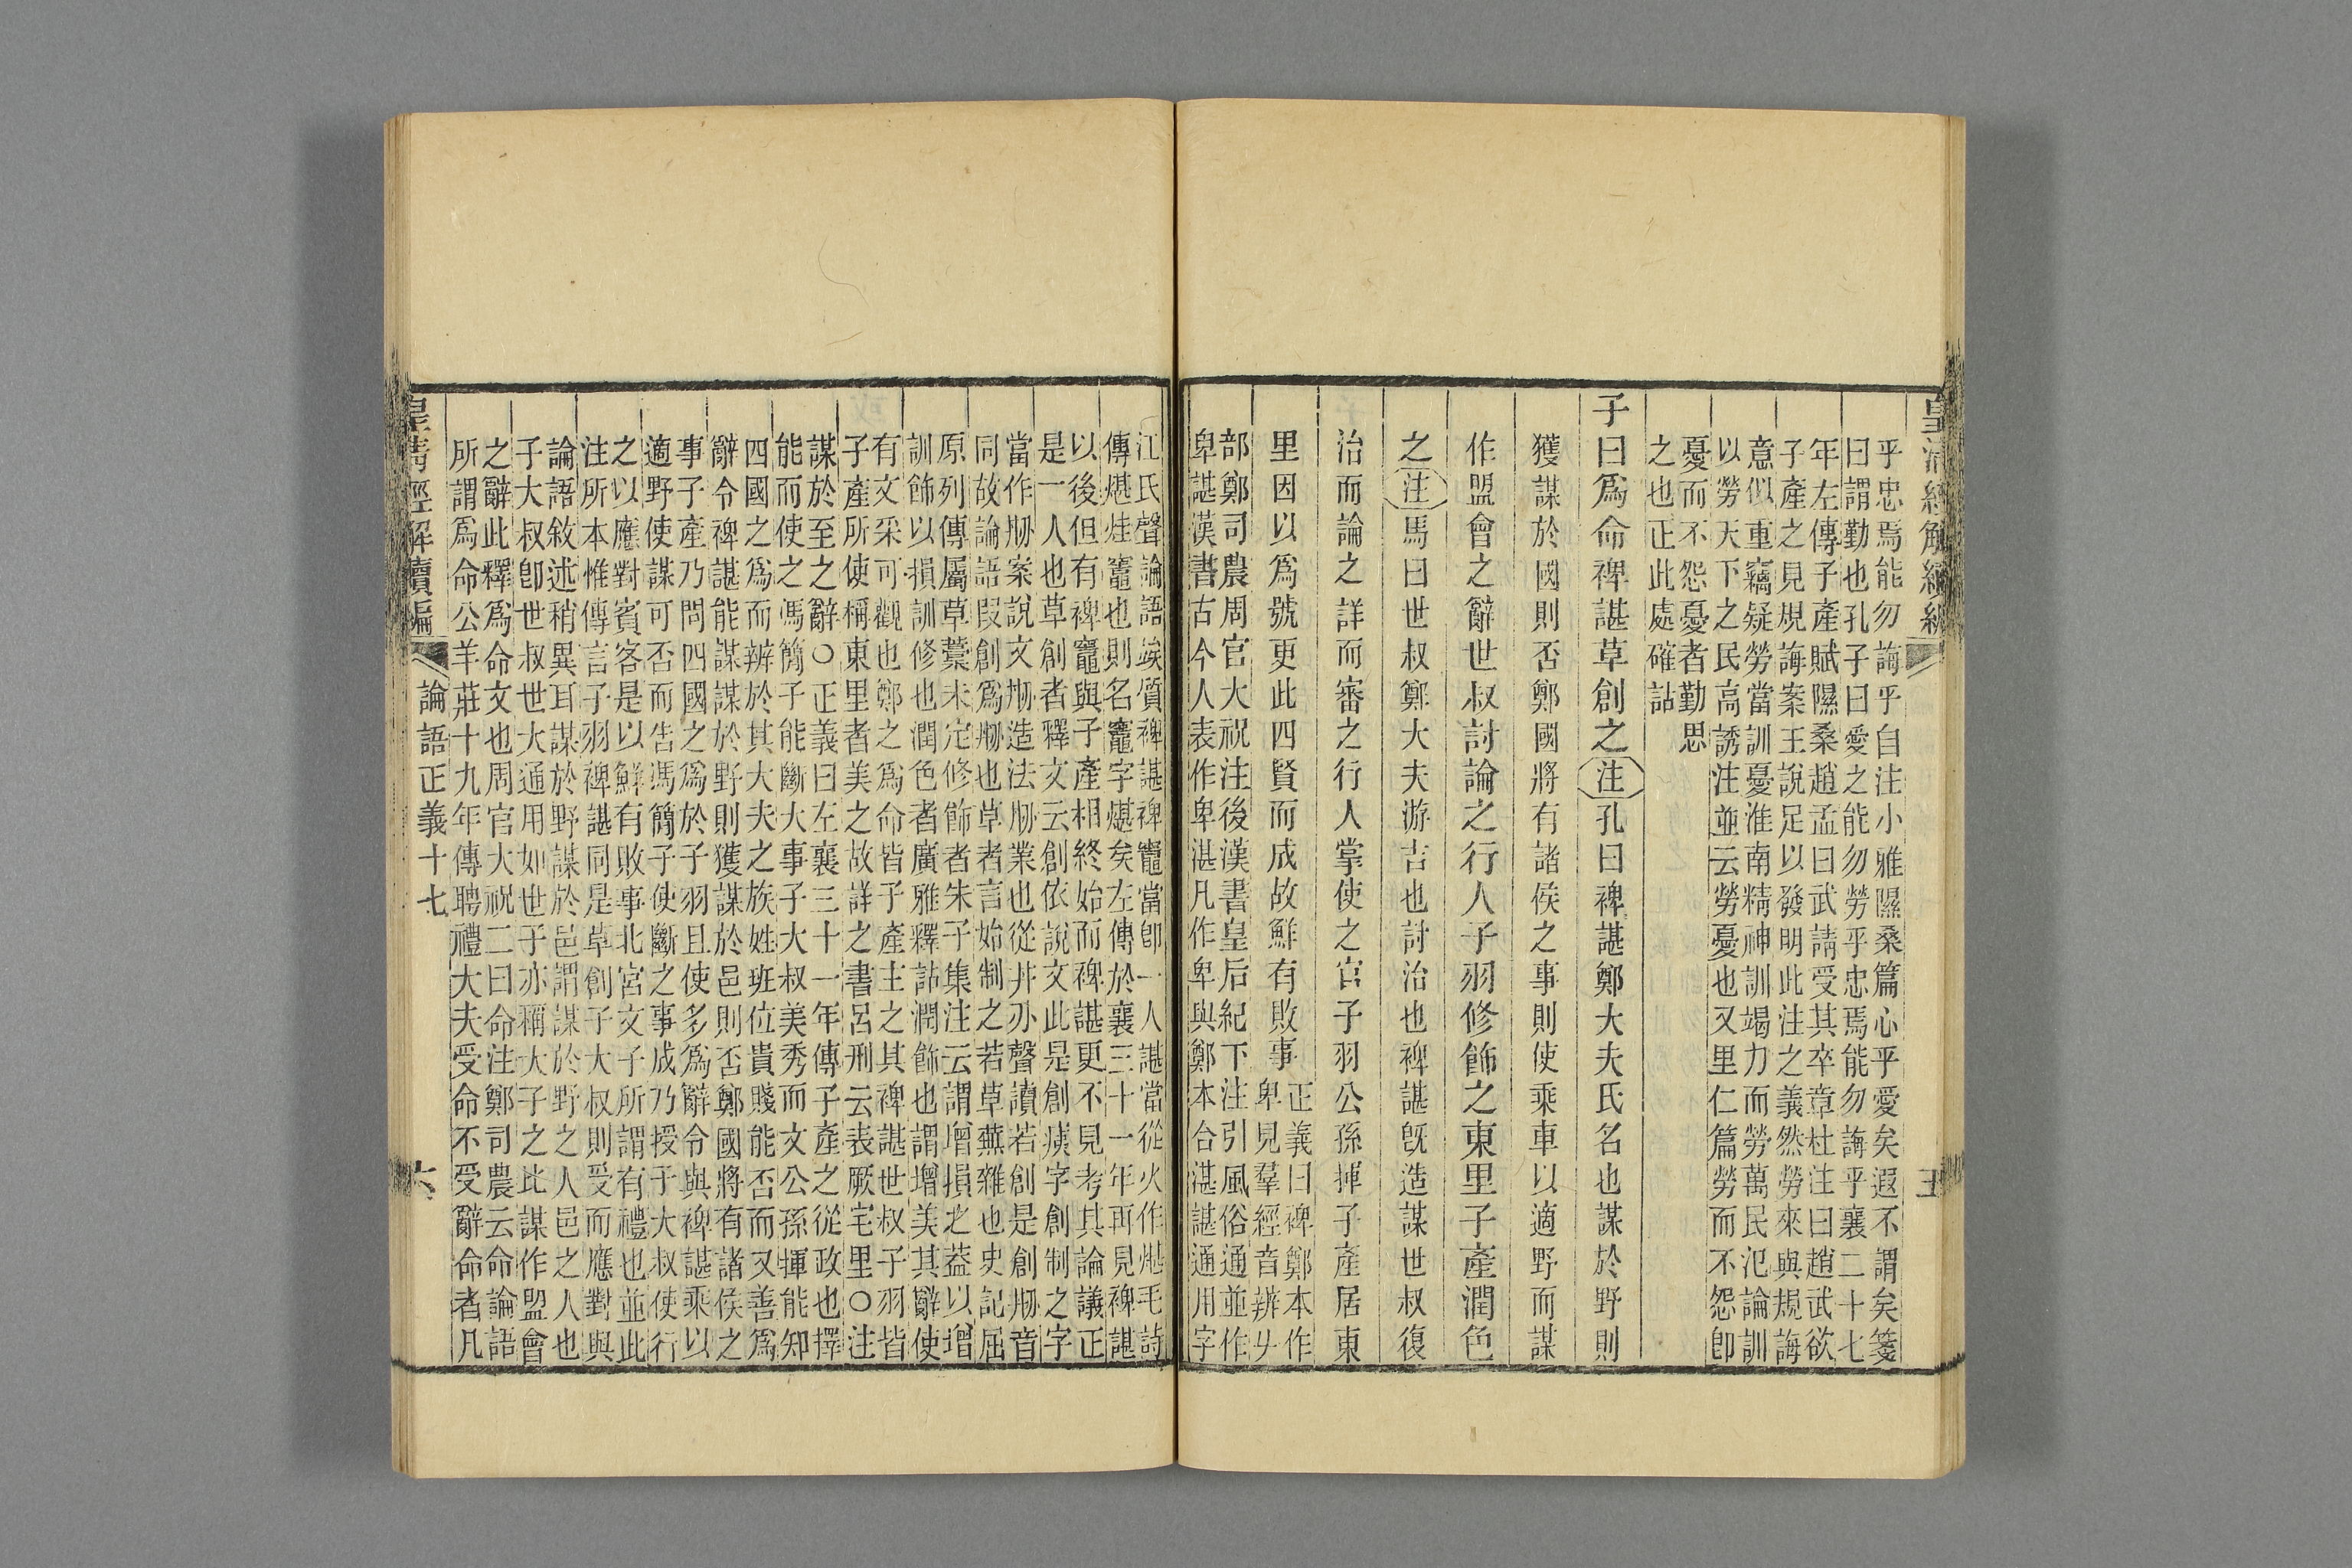 皇清經解續編
五
乎忠焉能勿誨乎自注小雅隰桑篇心乎愛矣遐不謂矣箋
曰謂勤也孔子曰愛之能勿勞乎忠焉能勿誨乎襄二十七
年左傳子產賦隰桑趙孟曰武請受其卒章杜注曰趙武欲
子產之見規誨案王說足以發明此注之義然勞來與規誨
意似重竊疑勞當訓憂淮南精神訓竭力而勞萬民氾論訓
以勞天下之民高誘注並云勞憂也又里仁篇勞而不怨卽
憂而不怨憂者勤思
之也正此處確詁
子曰爲命裨諶草創之注孔曰裨諶鄭大夫氏名也謀於野則
獲謀於國則否鄭國將有諸侯之事則使乘車以適野而謀
作盟會之辭世叔討論之行人子羽修飾之東里子產潤色
之注馬曰世叔鄭大夫游吉也討治也裨諶旣造謀世叔復
治而論之詳而審之行人掌使之官子羽公孫揮子產居東
里因以爲號更此四賢而成故鮮有敗事
正義曰裨鄭本作
卑見羣經音辨廾
部鄭司農周官大祝注後漢書皇后紀下注引風俗通並作
卑諶漢書古今人表作卑湛凡作卑與鄭本合湛諶通用字
江氏聲論語竢質裨諶裨竈當卽一人諶當從火作煁毛詩
傳煁烓竈也則名竈字煁矣左傳於襄三十一年再見裨諶
以後但有裨竈與子產相終始而裨諶更不見考其論議正
是一人也草創者釋文云創依說文此是創痍字創制之字
當作刱案說文刱造法刱業也從井刅聲讀若創是創刱音
同故論語叚創爲刱也草者言始制之若草蕪雜也史記屈
原列傳屬草藁未定修飾者朱子集注云謂增損之蓋以增
訓飾以損訓修也潤色者廣雅釋詁潤飾也謂增美其辭使
有文采可觀也鄭之爲命皆子產主之其裨諶世叔子羽皆
子產所使稱東里者美之故詳之書呂刑云表厥宅里○注
謀於至之辭○正義曰左襄三十一年傳子產之從政也擇
能而使之馮簡子能斷大事子大叔美秀而文公孫揮能知
四國之爲而辨於其大夫之族姓班位貴賤能否而又善爲
辭令裨諶能謀謀於野則獲謀於邑則否鄭國將有諸侯之
事子產乃問四國之爲於子羽且使多爲辭令與裨諶乘以
適野使謀可否而告馮簡子使斷之事成乃授子大叔使行
之以應對賓客是以鮮有敗事北宮文子所謂有禮也並此
注所本惟傳言子羽裨諶同是草創子大叔則受而應對與
論語敘述稍異耳謀於野謀於邑謂謀於野之人邑之人也
子大叔卽世叔世大通用如世子亦稱大子之比謀作盟會
之辭此釋爲命文也周官大祝二曰命注鄭司農云命論語
所謂爲命公羊莊十九年傳聘禮大夫受命不受辭命者凡
皇清經解續編
論語正義十七
六